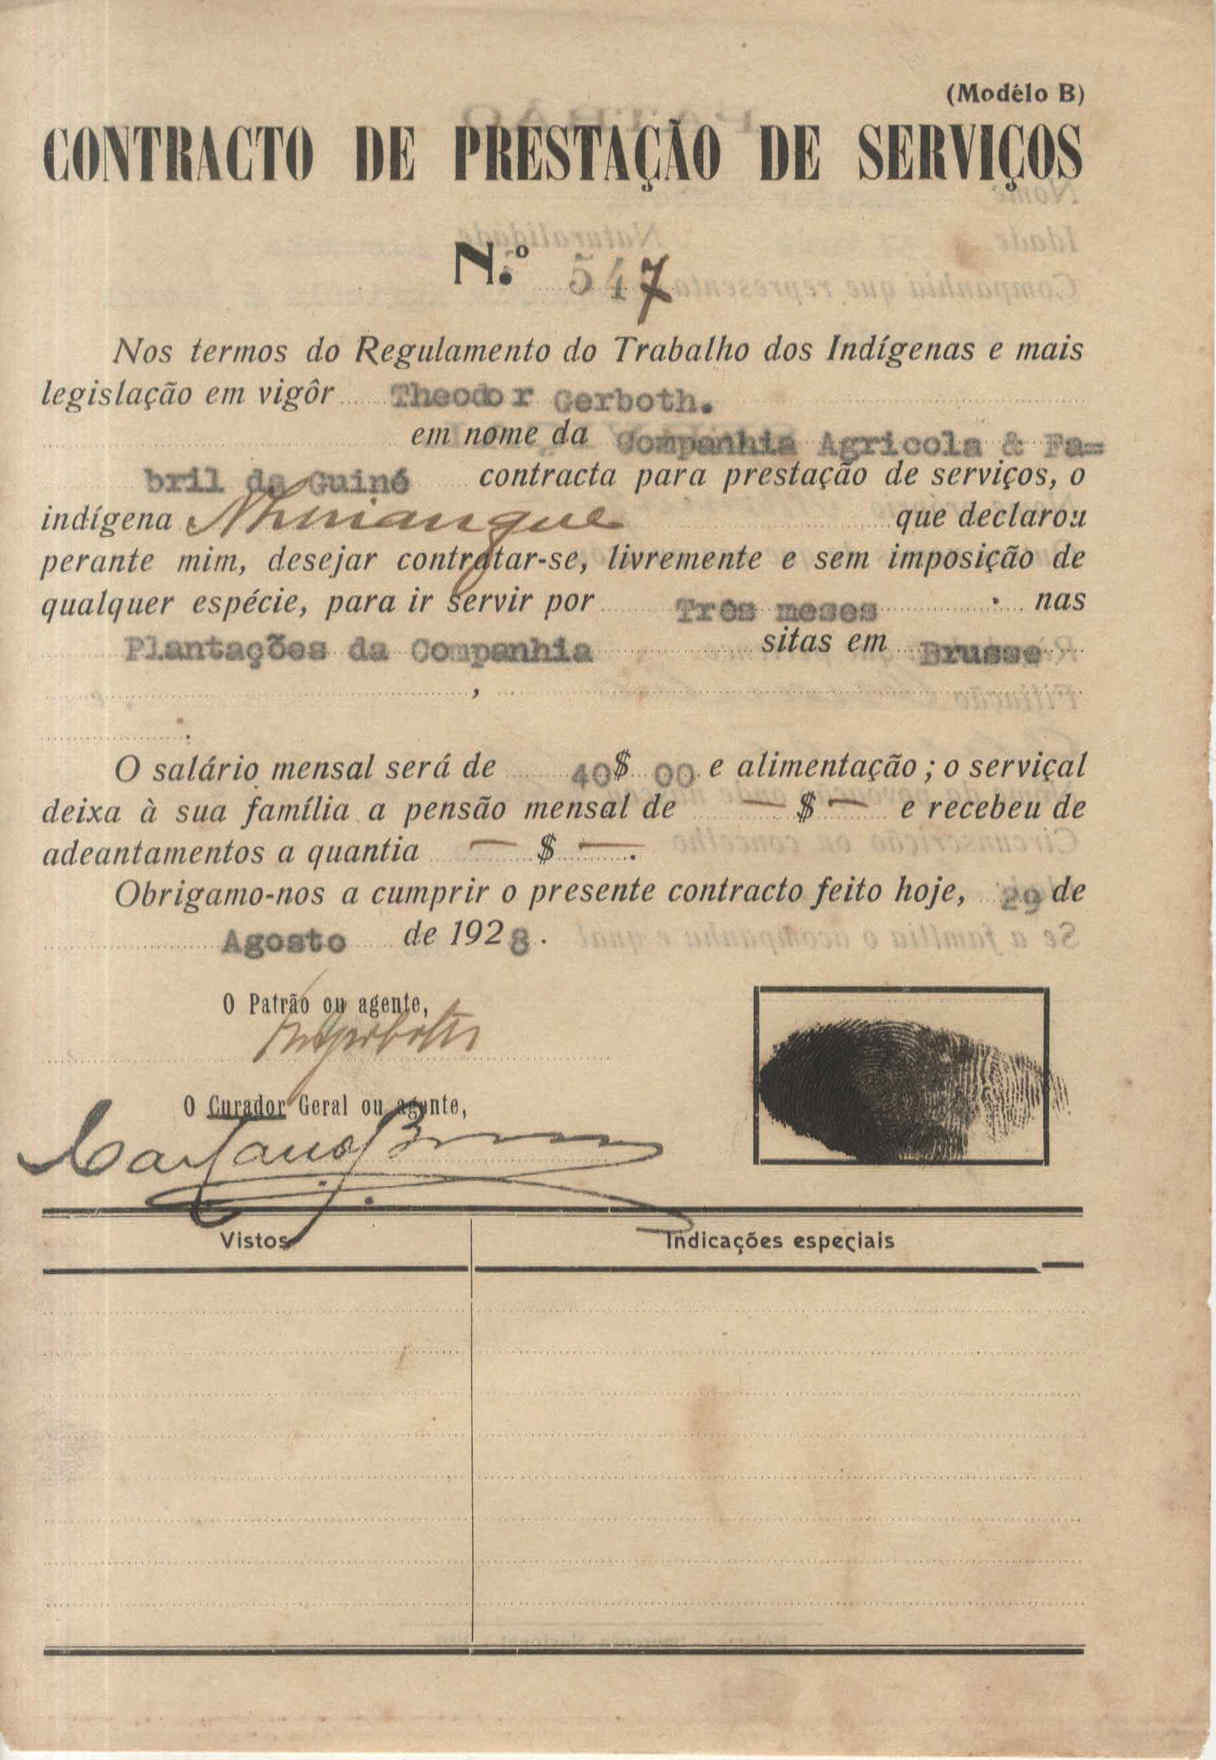 (Modêlo B)
CONTRACTO DE PRESTAÇÃO DE SERVIÇOS
N.º 547
Nos termos do Regulamento do Trabalho dos Indígenas e mais
legislação em vigôr Theodor Gerboth.
em nome da Companhia Agricola & Fa=
bril da Guiné contracta para prestação de serviços, o
indígena que declarou
perante mim, desejar contratar-se, livremente e sem imposição de
qualquer espécie, para ir servir por Três meses nas
Plantações da Companhia sitas em Brusse
,
.
O salário mensal será de 40$00 e alimentação; o serviçal
deixa à sua família a pensão mensal de — $ — e recebeu de
adeantamentos a quantia — $ —.
Obrigamo-nos a cumprir o presente contracto feito hoje, 29 de
Agosto de 1928.
O Patrão ou agente,
O Curador Geral ou agente,
Vistos
Indicações especiais